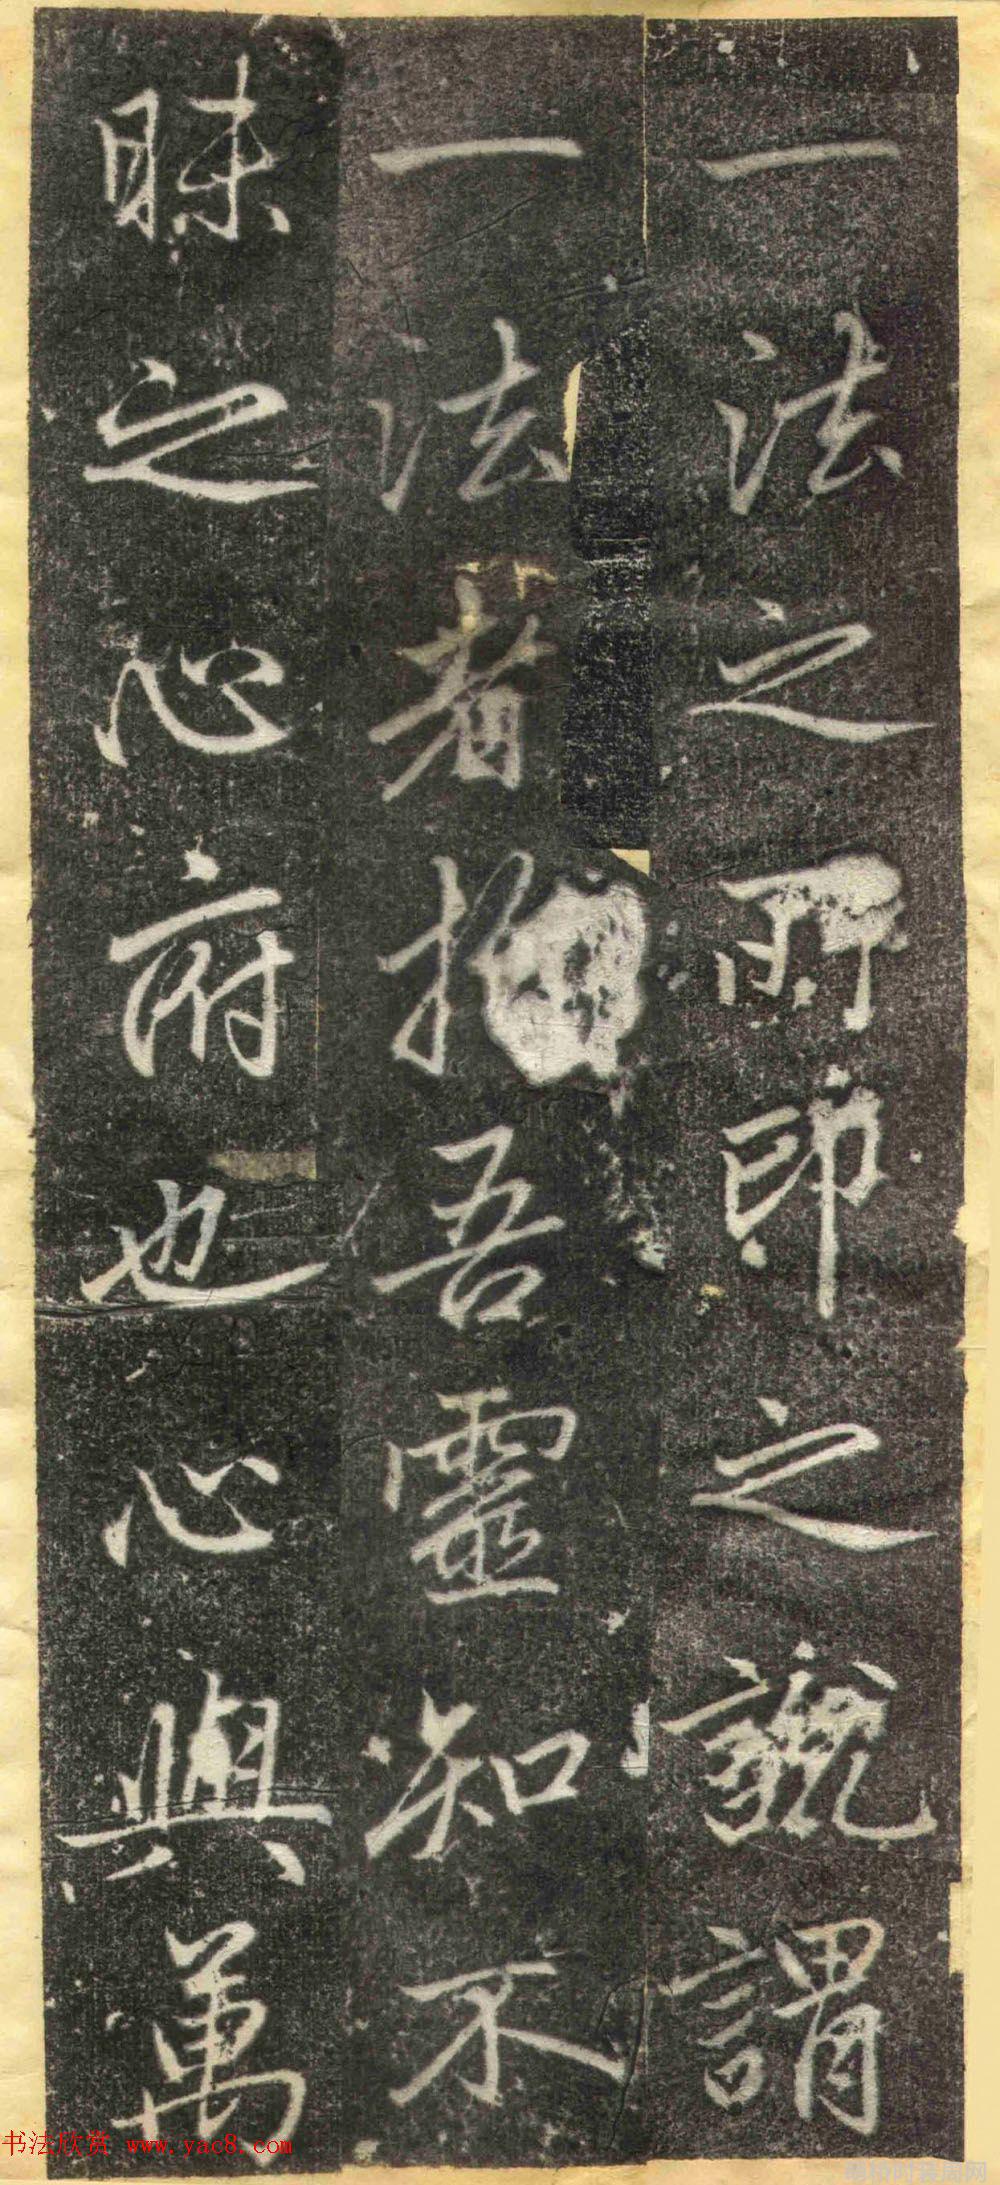 一法之所印之號謂
一法者指吾靈知不
昧之心府也心與萬
书法欣赏 www.yac8.com